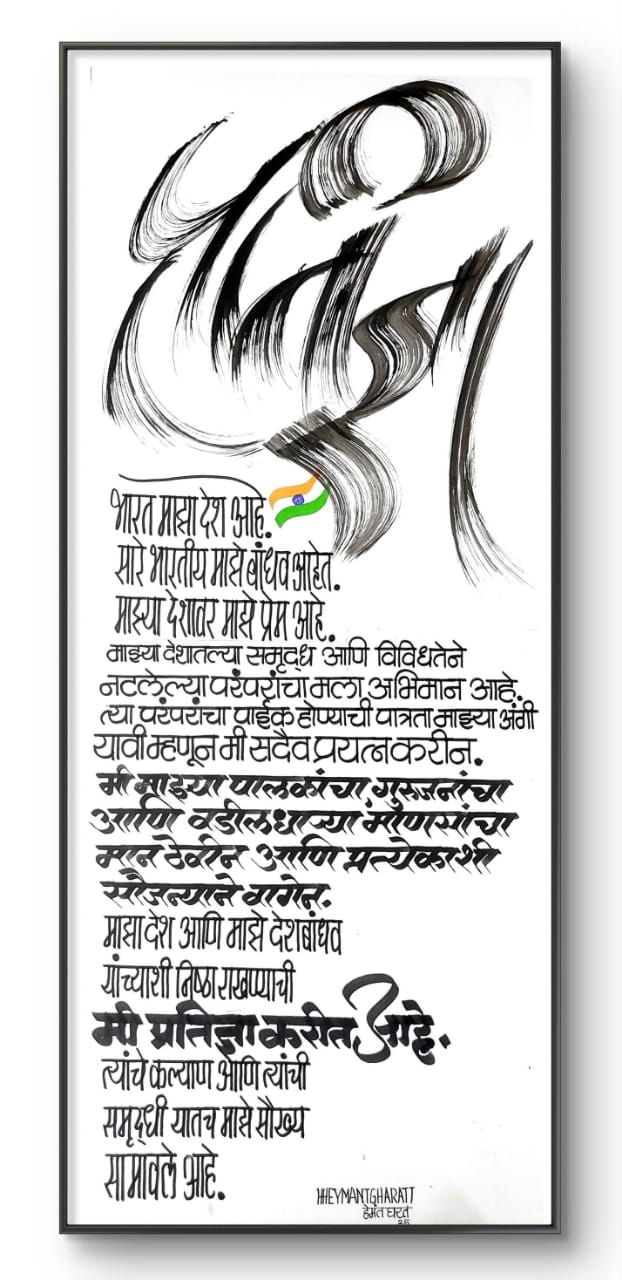 प्रतिज्ञा
भारत माझा देश आहे.
सारे भारतीय माझे बांधव आहेत.
माझ्या देशावर माझे प्रेम आहे.
माझ्या देशातल्या समृद्ध आणि विविधतेने
नटलेल्या परंपरांचा मला अभिमान आहे.
त्या परंपरांचा पाईक होण्याची पात्रता माझ्या अंगी
यावी म्हणून मी सदैव प्रयत्न करीन.
मी माझ्या पालकांचा, गुरुजनांचा
आणि वडीलधाऱ्या माणसांचा
मान ठेवीन आणि प्रत्येकाशी
सौजन्याने वागेन.
माझा देश आणि माझे देशबांधव
यांच्याशी निष्ठा राखण्याची
मी प्रतिज्ञा करीत आहे.
त्यांचे कल्याण आणि त्यांची
समृद्धी यातच माझे सौख्य
सामावले आहे.
HHEYMANTGHARATT
हेमंत घरत